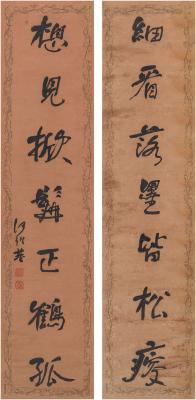 細看落墨皆松瘦
想見掀髯正鶴孤
何紹基